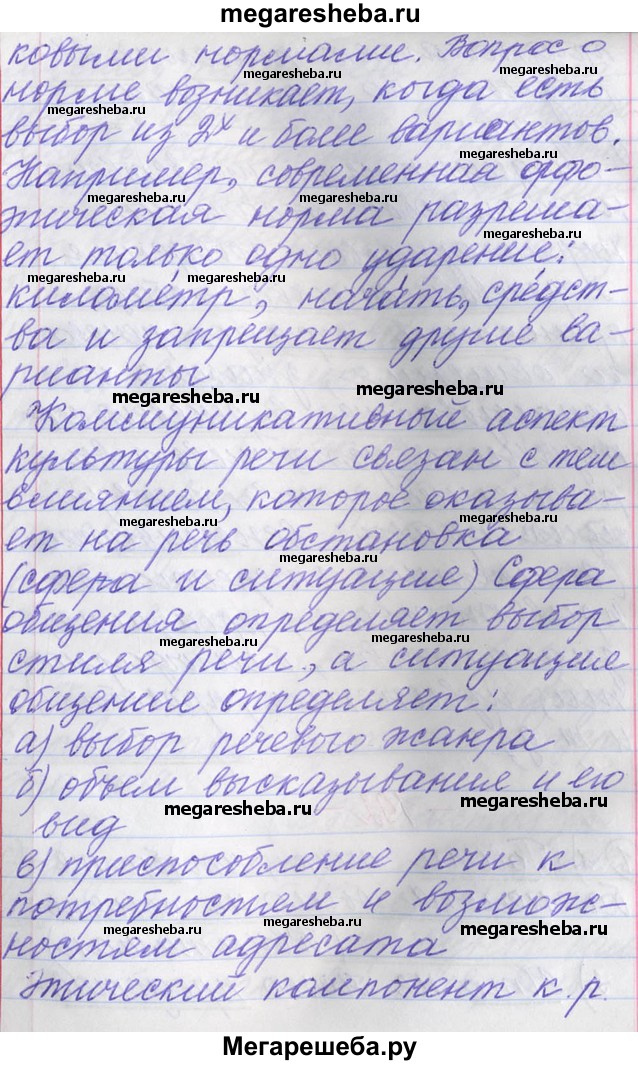 megaresheba.ru
ковыми нормами. Вопрос о
megaresheba.ru
норме возникает, когда есть
megaresheba.ru megaresheba.ru
выбор из 2х и более вариантов.
megaresheba.ru
Например, современная орфо-
megaresheba.ru megaresheba.ru
эпическая норма разреша-
megaresheba.ru
ет только одно ударение:
megaresheba.ru megaresheba.ru
киломе́тр, нача́ть, сре́дст-
ва и запрещает другие ва-
рианты
megaresheba.ru megaresheba.ru
Коммуникативный аспект
культуры речи связан с тем
влиянием, которое оказыва-
megaresheba.ru megaresheba.ru
ет на речь обстановка
megaresheba.ru
(сфера и ситуация) Сфера
общения определяет выбор
megaresheba.ru megaresheba.ru
стиля речи, а ситуация
общения определяет:
а) выбор речевого жанра
б) объем высказывания и его
megaresheba.ru megaresheba.ru
вид
в) приспособление речи к
потребностям и возмож-
megaresheba.ru megaresheba.ru megaresheba.ru
ностям адресата
Этический компонент к.р.
megaresheba.ru megaresheba.ru
Мегарешеба.ру